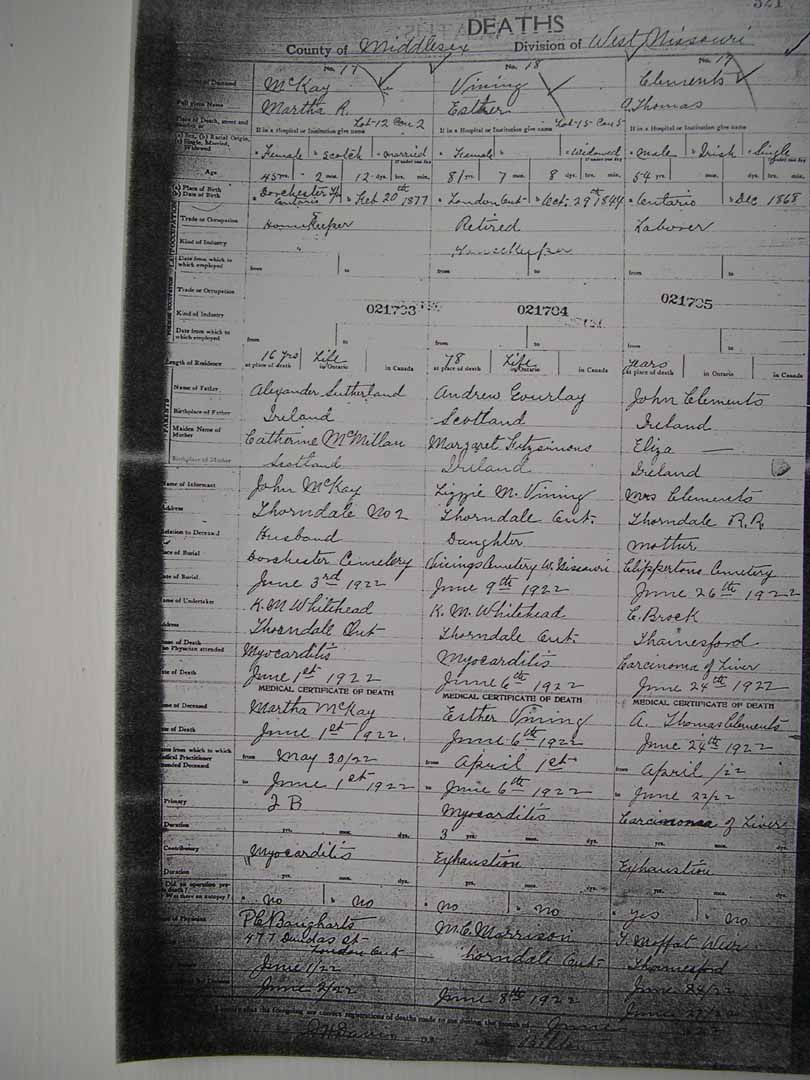 321
DEATHS
County of Middlesex Division of West Nissouri
No. 17 No. 18 No. 19
of Deceased McKay Vining Clements
Full given Name Martha R. Esther A. Thomas
Place of Death, street and Lot-12 Con 2 Lot-15-Con 5
If in a Hospital or Institution give name If in a Hospital or Institution give name If in a Hospital or Institution give name
Female Scotch Married Female Widowed Male Irish Single
Age 45 yrs. 2 mos. 12 dys. hrs. min. 81 yr. 7 mos. 8 dys. hrs. min. 54 yrs. mos. dys. hrs. min.
(a) Place of Birth (b) Date of Birth Dorchester Tp Ontario Feb 20th 1877 London Ont Oct. 29th 1844 Ontario Dec 1868
Trade or Occupation Housekeeper Retired Laborer
Kind of Industry " Housekeeper
Date from which to which employed from to from to from to
Trade or Occupation
Kind of Industry 021733 021734 021735
Date from which to which employed from to from to from to
Length of Residence 16 yrs Life 78 Life years
at place of death in Ontario in Canada at place of death in Ontario in Canada at place of death in Ontario in Canada
Name of Father Alexander Sutherland Andrew Gourlay John Clements
Birthplace of Father Ireland Scotland Ireland
Maiden Name of Mother Catherine McMillan Margaret Fitzsimons Eliza —
Birthplace of Mother Scotland Ireland Ireland
Name of Informant John McKay Lizzie M. Vining Mrs Clements
Address Thorndale No 2 Thorndale Ont. Thorndale R.R.
Relation to Deceased Husband Daughter Mother
Place of Burial Dorchester Cemetery Vinings Cemetery W. Nissouri Clippertons Cemetery
Date of Burial June 3rd 1922 June 9th 1922 June 26th 1922
Name of Undertaker K. M Whitehead K. M. Whitehead C. Brock
Address Thorndale Ont Thorndale Ont. Thamesford
Physician attended Myocarditis Myocarditis Carcinoma of Liver
Date of Death June 1st 1922 June 6th 1922 June 24th 1922
MEDICAL CERTIFICATE OF DEATH MEDICAL CERTIFICATE OF DEATH MEDICAL CERTIFICATE OF DEATH
Name of Deceased Martha McKay Esther Vining A. Thomas Clements
Date of Death June 1st 1922. June 6th 1922 June 24th 1922
from which to which from May 30/22 from April 1st from April /22
Medical Practitioner attended Deceased to June 1st 1922 to June 6th 1922 to June 22/22
Primary T B Myocarditis Carcinoma of Liver
Duration yrs. mos. dys. 3 yrs. mos. dys. yrs. mos. dys.
Contributory "Myocarditis Exhaustion Exhaustion
Duration yrs. mos. dys. yrs. mos. dys. yrs. mos. dys.
Did an operation precede death?
Was there an autopsy? no no no no yes no
of Physician M.C. Morrison Moffat Weir
477 Dundas St London Ont Thorndale Ont Thamesford
June 1/22 June 24/22
June 2/22 June 8th 1922 June 27/22
I certify that the foregoing are correct registrations of deaths made to me during the month of June